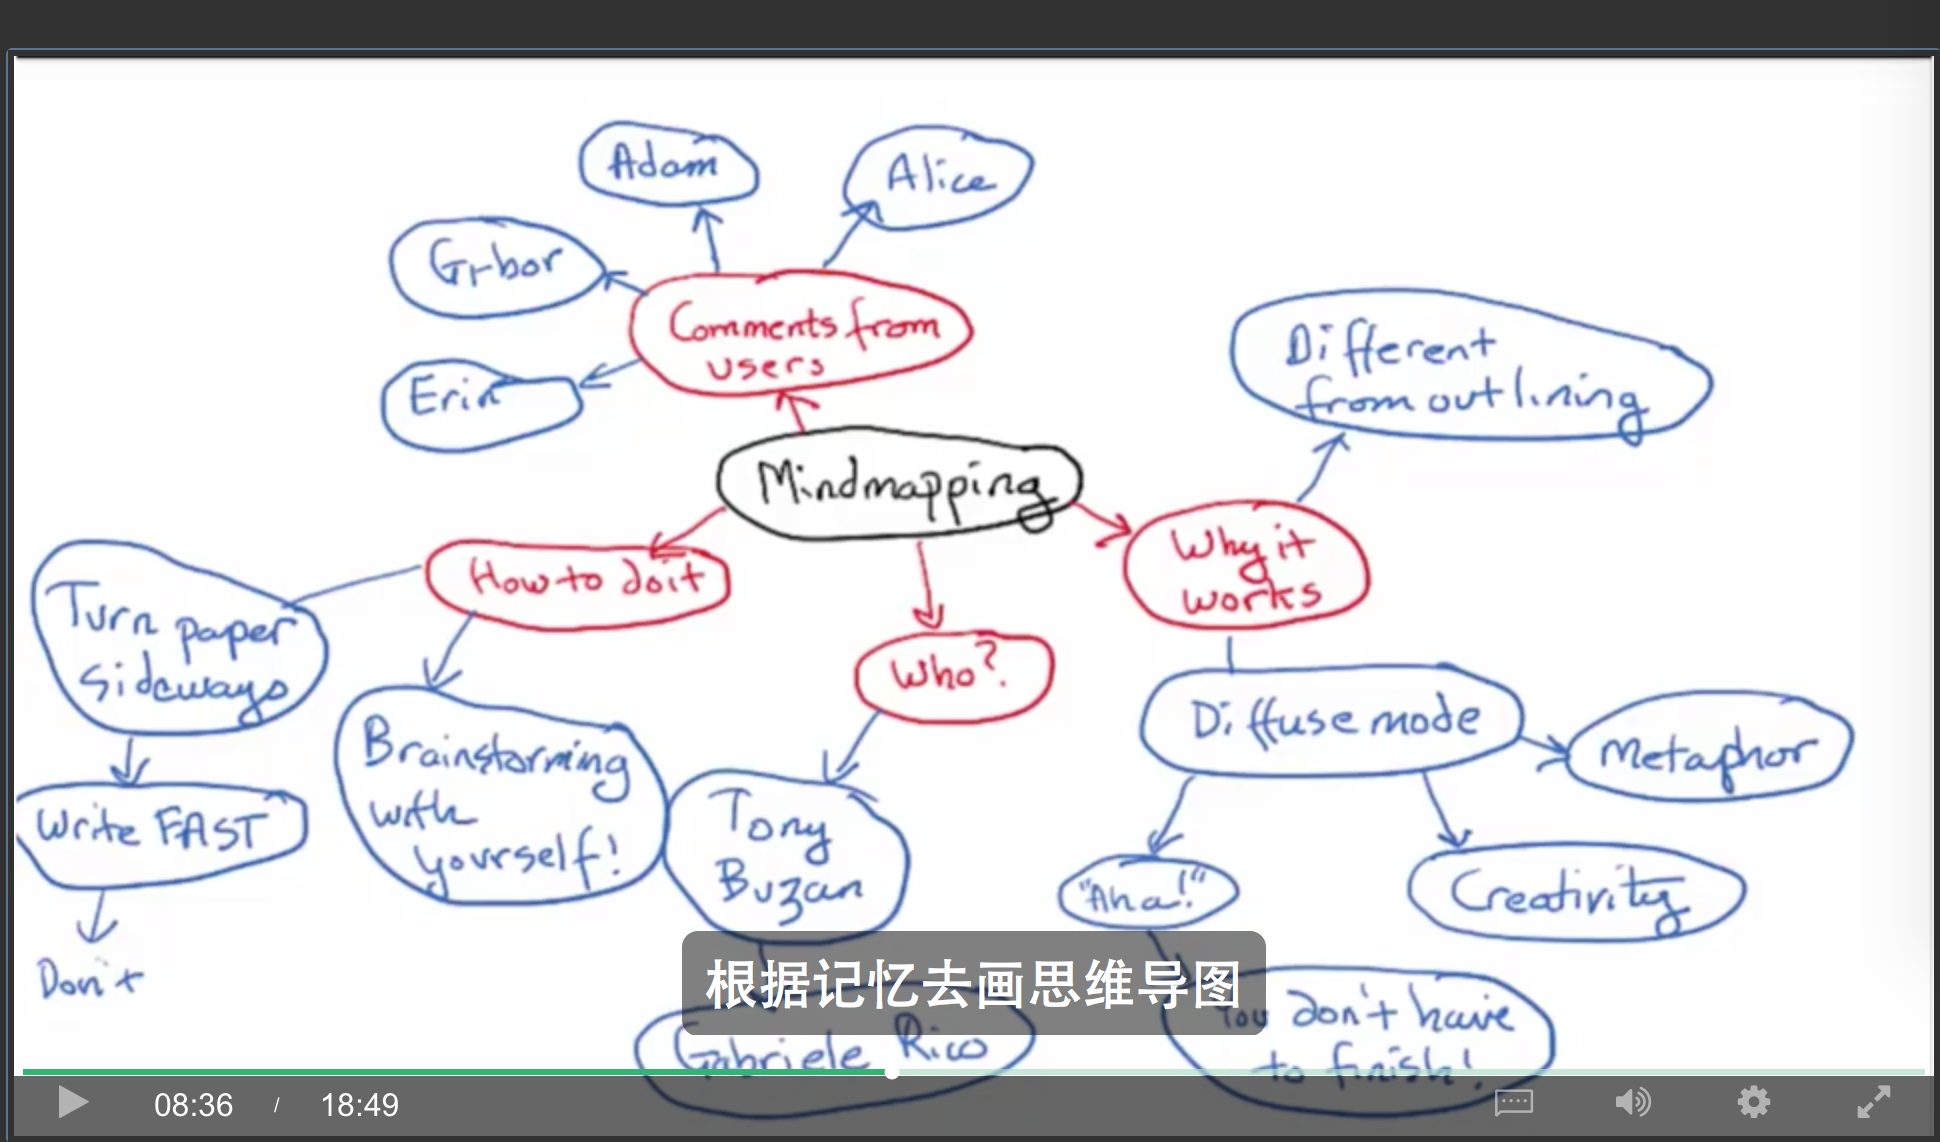 Adam
Alice
Grbor
Comments from
users
Erin
Different
from outlining
Mindmapping
Why it
works
How to do it
Turn paper
sideways
Who?
Diffuse mode
Metaphor
Brainstorming
with
yourself!
Write FAST
Tony
Buzan
"Aha!"
Creativity
Don't
根据记忆去画思维导图
You don't have
to finish!
Gabriele Rico
08:36 / 18:49